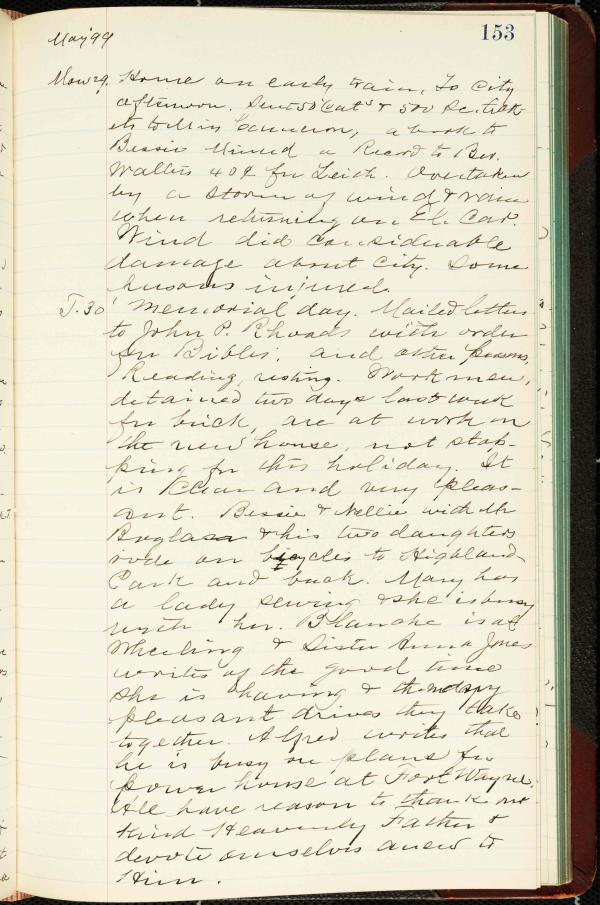 May '99
153
Mon 29. Home on early train, To city
afternoon. Sent 50 Cat's & 500 Sc. tick-
ets to Miss Cameron, a book to
Bessie a Record to Bro.
Walter 40¢ for Leich. Overtaken
by a storm of wind & rain
when returning on El. Car.
Wind did considerable
damage about city. Some
persons injured.
T. 30 Memorial day. Mailed letters
to John P. Rhoads with order
for Bibles, and other persons,
Reading, resting. Workmen,
detained two days last week
for brick, are at work on
the new house, not stop-
ping for this holiday. It
is clear and very pleas-
ant. Bessie & Nellie with Mr
& his two daughters
rode on bicycles to Highland
Park and back. Mary has
a lady sewing & she is busy
with her. Blanche is at
Wheeling & Sister Anna Jones
writes of the good time
she is having & the many
pleasant drives they take
together. Alfred writes that
he is busy on plans for
power house at Fort Wayne.
We have reason to thank our
Kind Heavenly Father &
devote ourselves anew to
Him.